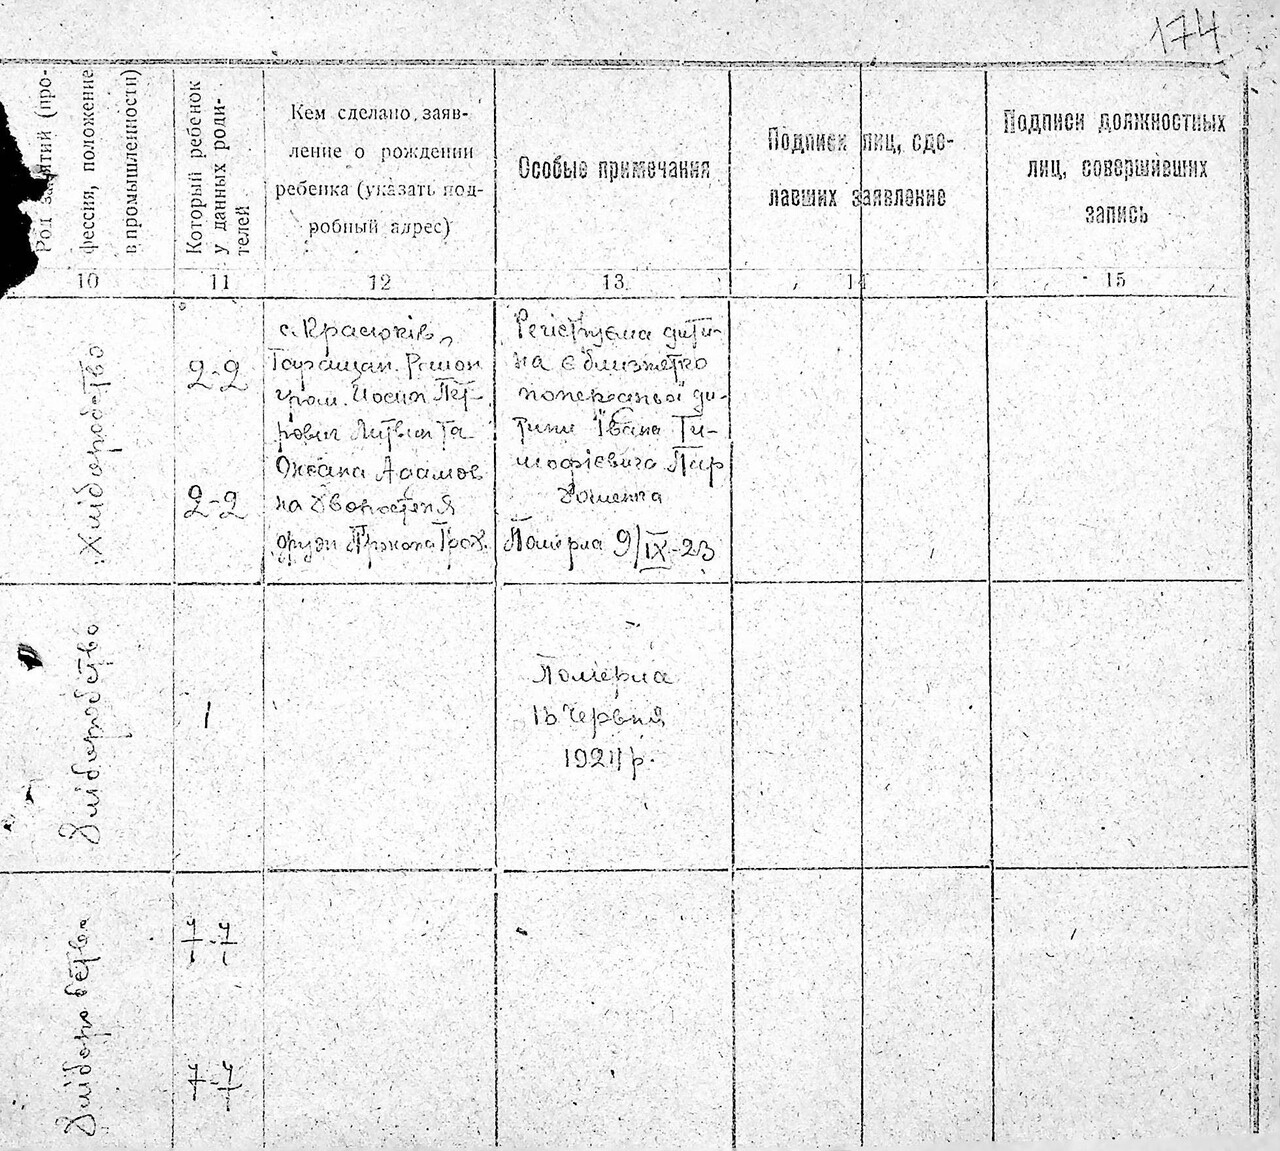 174
Род занятий (про-
фессия, положение
в промышленности)
Который ребенок
у данных роди-
телей
Кем сделано заяв-
ление о рождении
ребенка (указать под-
робный адрес)
Особые примечания
Подписи лиц, сде-
лавших заявление
Подписи должностных
лиц, совершивших
запись
10
11
12
13.
14
15
Хліборобство
2-2
2-2
с. Красюків,
Таращан. Район
гром. Йосип Пет-
рович Литвин та
Оксана Адамов
на
Регіструєма дити-
на є близнятко
попередньої ди-
тини Івана Ти-
мофієвича Пар
хоменка
Померла 9/IX-23
Хліборобство
1
Померла
15 Червня
1924 р.
Хліборобство
7-7
7-7